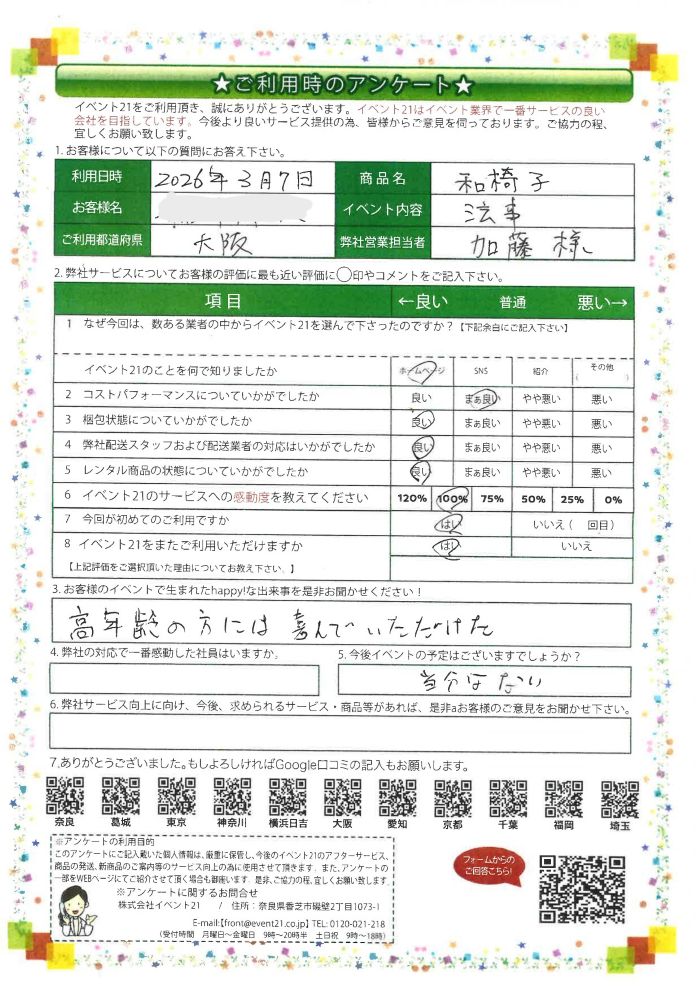 ★ご利用時のアンケート★
イベント21をご利用頂き、誠にありがとうございます。イベント21はイベント業界で一番サービスの良い
会社を目指しています。今後より良いサービス提供の為、皆様からご意見を伺っております。ご協力の程、
宜しくお願い致します。
1.お客様について以下の質問にお答え下さい。
利用日時 2026年3月7日 商品名 和椅子
お客様名 イベント内容 法事
ご利用都道府県 大阪 弊社営業担当者 加藤様
2.弊社サービスについてお客様の評価に最も近い評価に◯印やコメントをご記入下さい。
項目 ←良い 普通 悪い→
1 なぜ今回は、数ある業者の中からイベント21を選んで下さったのですか?【下記余白にご記入下さい】
イベント21のことを何で知りましたか ホームページ SNS 紹介 その他( )
2 コストパフォーマンスについていかがでしたか 良い まぁ良い やや悪い 悪い
3 梱包状態についていかがでしたか 良い まぁ良い やや悪い 悪い
4 弊社配送スタッフおよび配送業者の対応はいかがでしたか 良い まぁ良い やや悪い 悪い
5 レンタル商品の状態についていかがでしたか 良い まぁ良い やや悪い 悪い
6 イベント21のサービスへの感動度を教えてください 120% 100% 75% 50% 25% 0%
7 今回が初めてのご利用ですか はい いいえ( 回目)
8 イベント21をまたご利用いただけますか はい いいえ
【上記評価をご選択頂いた理由についてお教え下さい。】
3.お客様のイベントで生まれたhappy!な出来事を是非お聞かせください!
高年齢の方には喜んでいただけた
4.弊社の対応で一番感動した社員はいますか。
5.今後イベントの予定はございますでしょうか?
当分はない
6.弊社サービス向上に向け、今後、求められるサービス・商品等があれば、是非aお客様のご意見をお聞かせ下さい。
7.ありがとうございました。もしよろしければGoogle口コミの記入もお願いします。
奈良 葛城 東京 神奈川 横浜日吉 大阪 愛知 京都 千葉 福岡 埼玉
※アンケートの利用目的
このアンケートにご記入戴いた個人情報は、厳重に保管し、今後のイベント21のアフターサービス、
商品の発送、新商品のご案内等のサービス向上の為に使用させて頂きます。また、アンケートの
一部をWEBページにてご紹介させて頂く場合も御座います。是非、ご協力の程、宜しくお願い致します。
※アンケートに関するお問合せ
株式会社イベント21 / 住所:奈良県香芝市磯壁2丁目1073-1
E-mail:【front@event21.co.jp】 TEL: 0120-021-218
(受付時間 月曜日〜金曜日 9時〜20時半 土日祝 9時〜18時)
フォームからの
ご回答こちら!